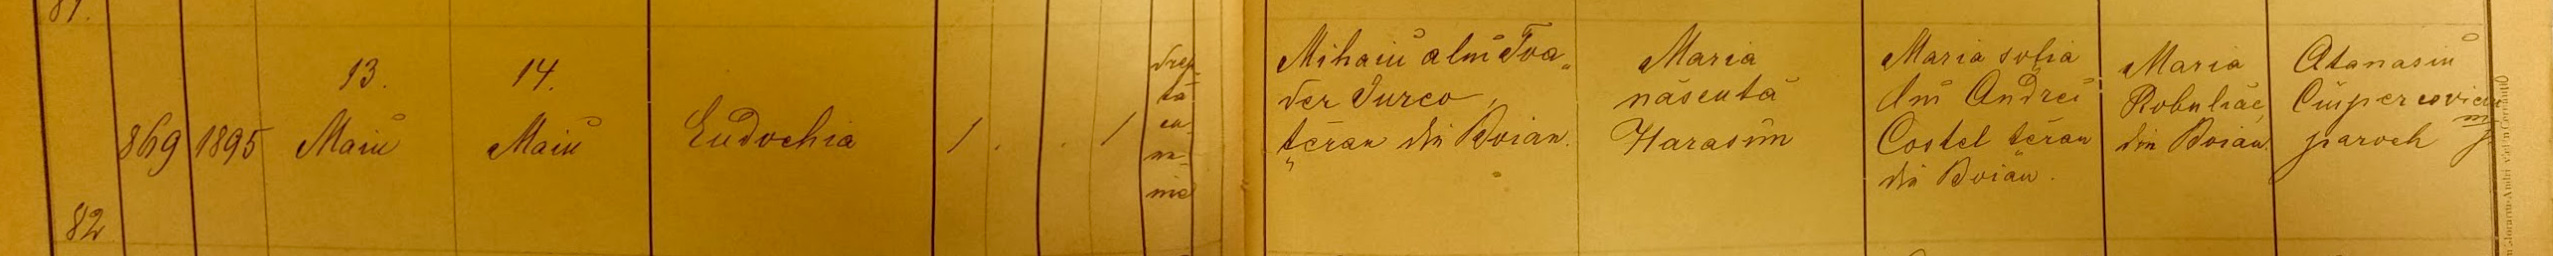 81.
82
869
1895
13.
Maiu
14.
Maiu
Eudochia
1 .
. 1
drep-
tă
cu-
nu-
nie
Mihaiu alui Toa„
der Turco,
țěran din Boian.
Maria
născută
Harasim
Maria soția
lui Andrei
Costel țěran
din Boian.
Maria
Robuliac,
din Boian.
Atanasiu
paroch